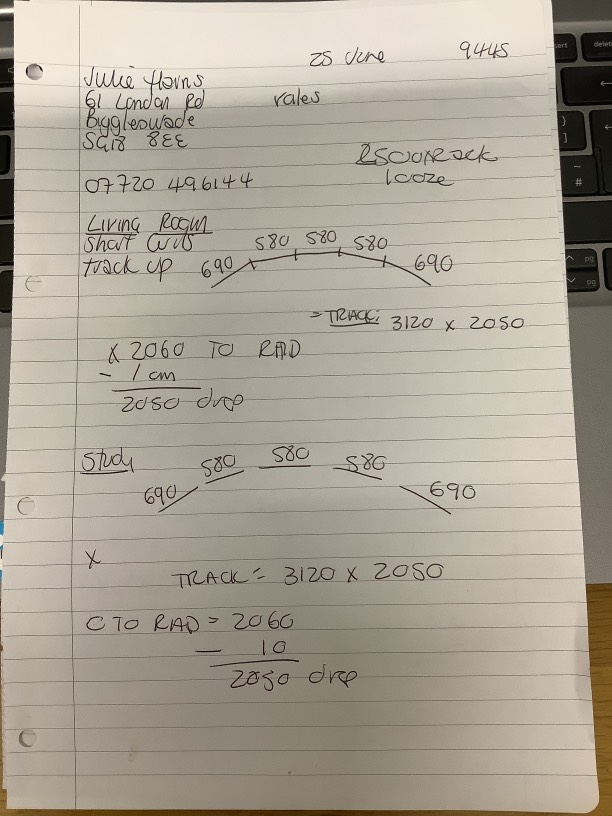 25 June 9445
Julie
61 London Rd
Biggleswade
SG18 8EE
07720 496144
Living Room
Short
Track up
690 580 580 580 690
= TRACK: 3120 x 2050
x 2060 TO RAD
- 1 cm
2050 drop
Study
690 580 580 580 690
x
TRACK = 3120 x 2050
C TO RAD = 2060
- 10
2050 drop